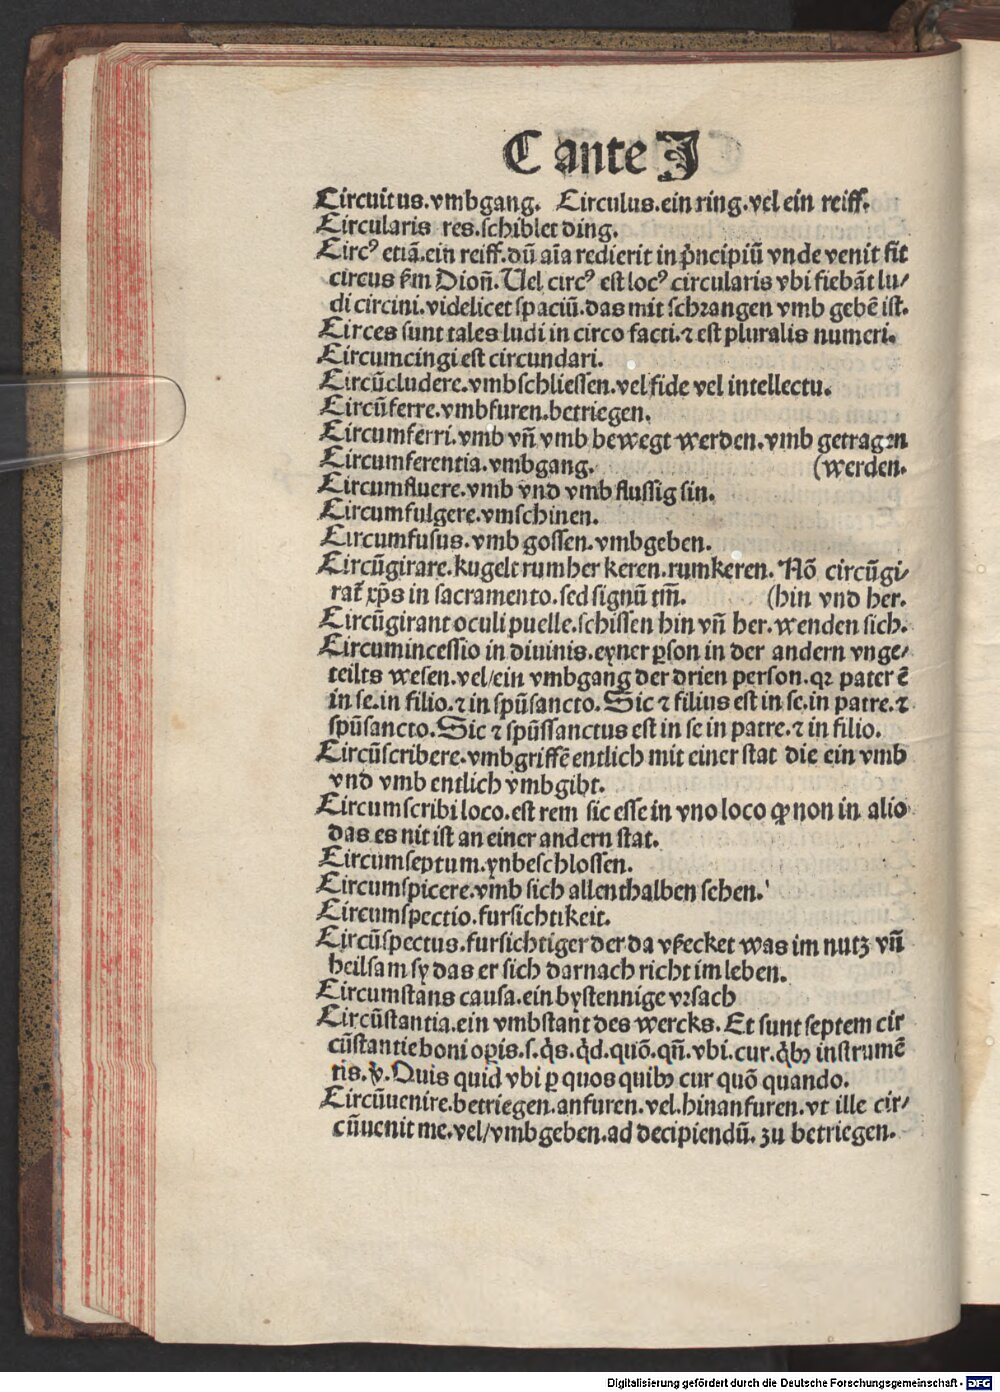 C ante J
Circuitus.vmbgang. Circulus.ein ring.vel ein reiff.
Circularis res.ſchiblet ding.
Circꝰ etiã.ein reiff.dũ aĩa redierit in pͥncipiũ vnde venit fit
circus ẜm Dioñ.Uel circꝰ eſt locꝰ circularis vbi fiebãt lu⸗
di circini.videlicet ſpaciũ.das mit ſchꝛangen vmb gebẽ iſt.
Circes ſunt tales ludi in circo facti.⁊ eſt pluralis numeri.
Circumcingi eſt circundari.
Circũcludere.vmbſchlieſſen.vel fide vel intellectu.
Circũferre.vmbfuren.betriegen.
Circumferri.vmb vñ vmb bewegt werden.vmb getragen
Circumferentia.vmbgang. (werden.
Circumfluere.vmb vnd vmb fluſſig ſin.
Circumfulgere.vmſchinen.
Circumfuſus.vmb goſſen.vmbgeben.
Circũgirare.kugelt rumher keren.rumkeren. Nõ circũgi⸗
rat̃ xp̃s in ſacramento.ſed ſignũ tm̃. (hin vnd her.
Circũgirant oculi puelle.ſchiſſen hin vñ her.wenden ſich.
Circuminceſſio in diuinis.eyner ꝑſon in der andern vnge⸗
teilts weſen.vel/ein vmbgang der drien perſon.qꝛ pater ẽ
in ſe.in filio.⁊ in ſpũſancto.Sic ⁊ filius eſt in ſe.in patre.⁊
ſpũſancto.Sic ⁊ ſpũſſanctus eſt in ſe in patre.⁊ in filio.
Circũſcribere.vmbgriffẽ entlich mit einer ſtat die ein vmb
vnd vmb entlich vmbgibt.
Circumſcribi loco.eſt rem ſic eſſe in vno loco ꝙ non in alio
das es nit iſt an einer andern ſtat.
Circumſeptum.ynbeſchloſſen.
Circumſpicere.vmb ſich allenthalben ſehen.
Circumſpectio.furſichtikeit.
Circũſpectus.furſichtiger der da vßecket was im nutz vñ
heilſam ſy das er ſich darnach richt im leben.
Circumſtans cauſa.ein byſtennige vꝛſach
Circũſtantia.ein vmbſtant des wercks. Et ſunt ſeptem cir
cũſtantie boni oꝑis.ſ.qͥs.qͥd.quõ.qñ.vbi.cur.qͥbꝫ inſtrumẽ
tis.ꝟ.Quis quid vbi ꝑ quos quibꝫ cur quõ quando.
Circũuenire.betriegen.anfuren.vel.hinanfuren.vt ille cir⸗
cũuenit me.vel/vmbgeben.ad decipiendũ.zu betriegen.
Digitalisierung gefördert durch die Deutsche Forschungsgemeinschaft - DFG